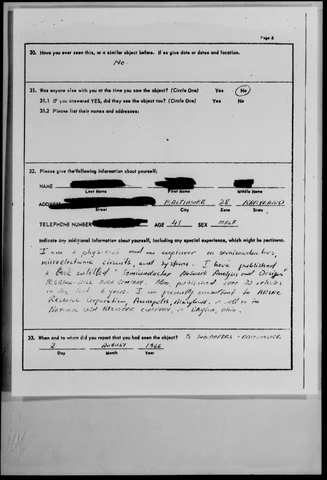 Page 6
30. Have you ever seen this, or a similar object before. If so give date or dates and location.
No.
31. Was anyone else with you at the time you saw the object? (Circle One) Yes No
31.1 If you answered YES, did they see the object too? (Circle One) Yes No
31.2 Please list their names and addresses:
32. Please give the following information about yourself:
NAME
Last Name First Name Middle Name
ADDRESS BALTIMORE 28 MARYLAND
Street City Zone State
TELEPHONE NUMBER AGE 41 SEX MALE
Indicate any additional information about yourself, including any special experience, which might be pertinent.
I am a physicist and an engineer in semiconductors,
microelectronic circuits, and systems. I have published
a book entitled "Semiconductor Network Analysis and Design"
McGRAW-HILL BOOK COMPANY. Also, published over 20 articles
in the last 8 years. I am presently consultant to
Research Corporation, Annapolis, Maryland, as well as to
National Cash Register Company, in Dayton, Ohio.
33. When and to whom did you report that you had seen the object? To SUNPAPERS - BALTIMORE
2 AUGUST 1966
Day Month Year